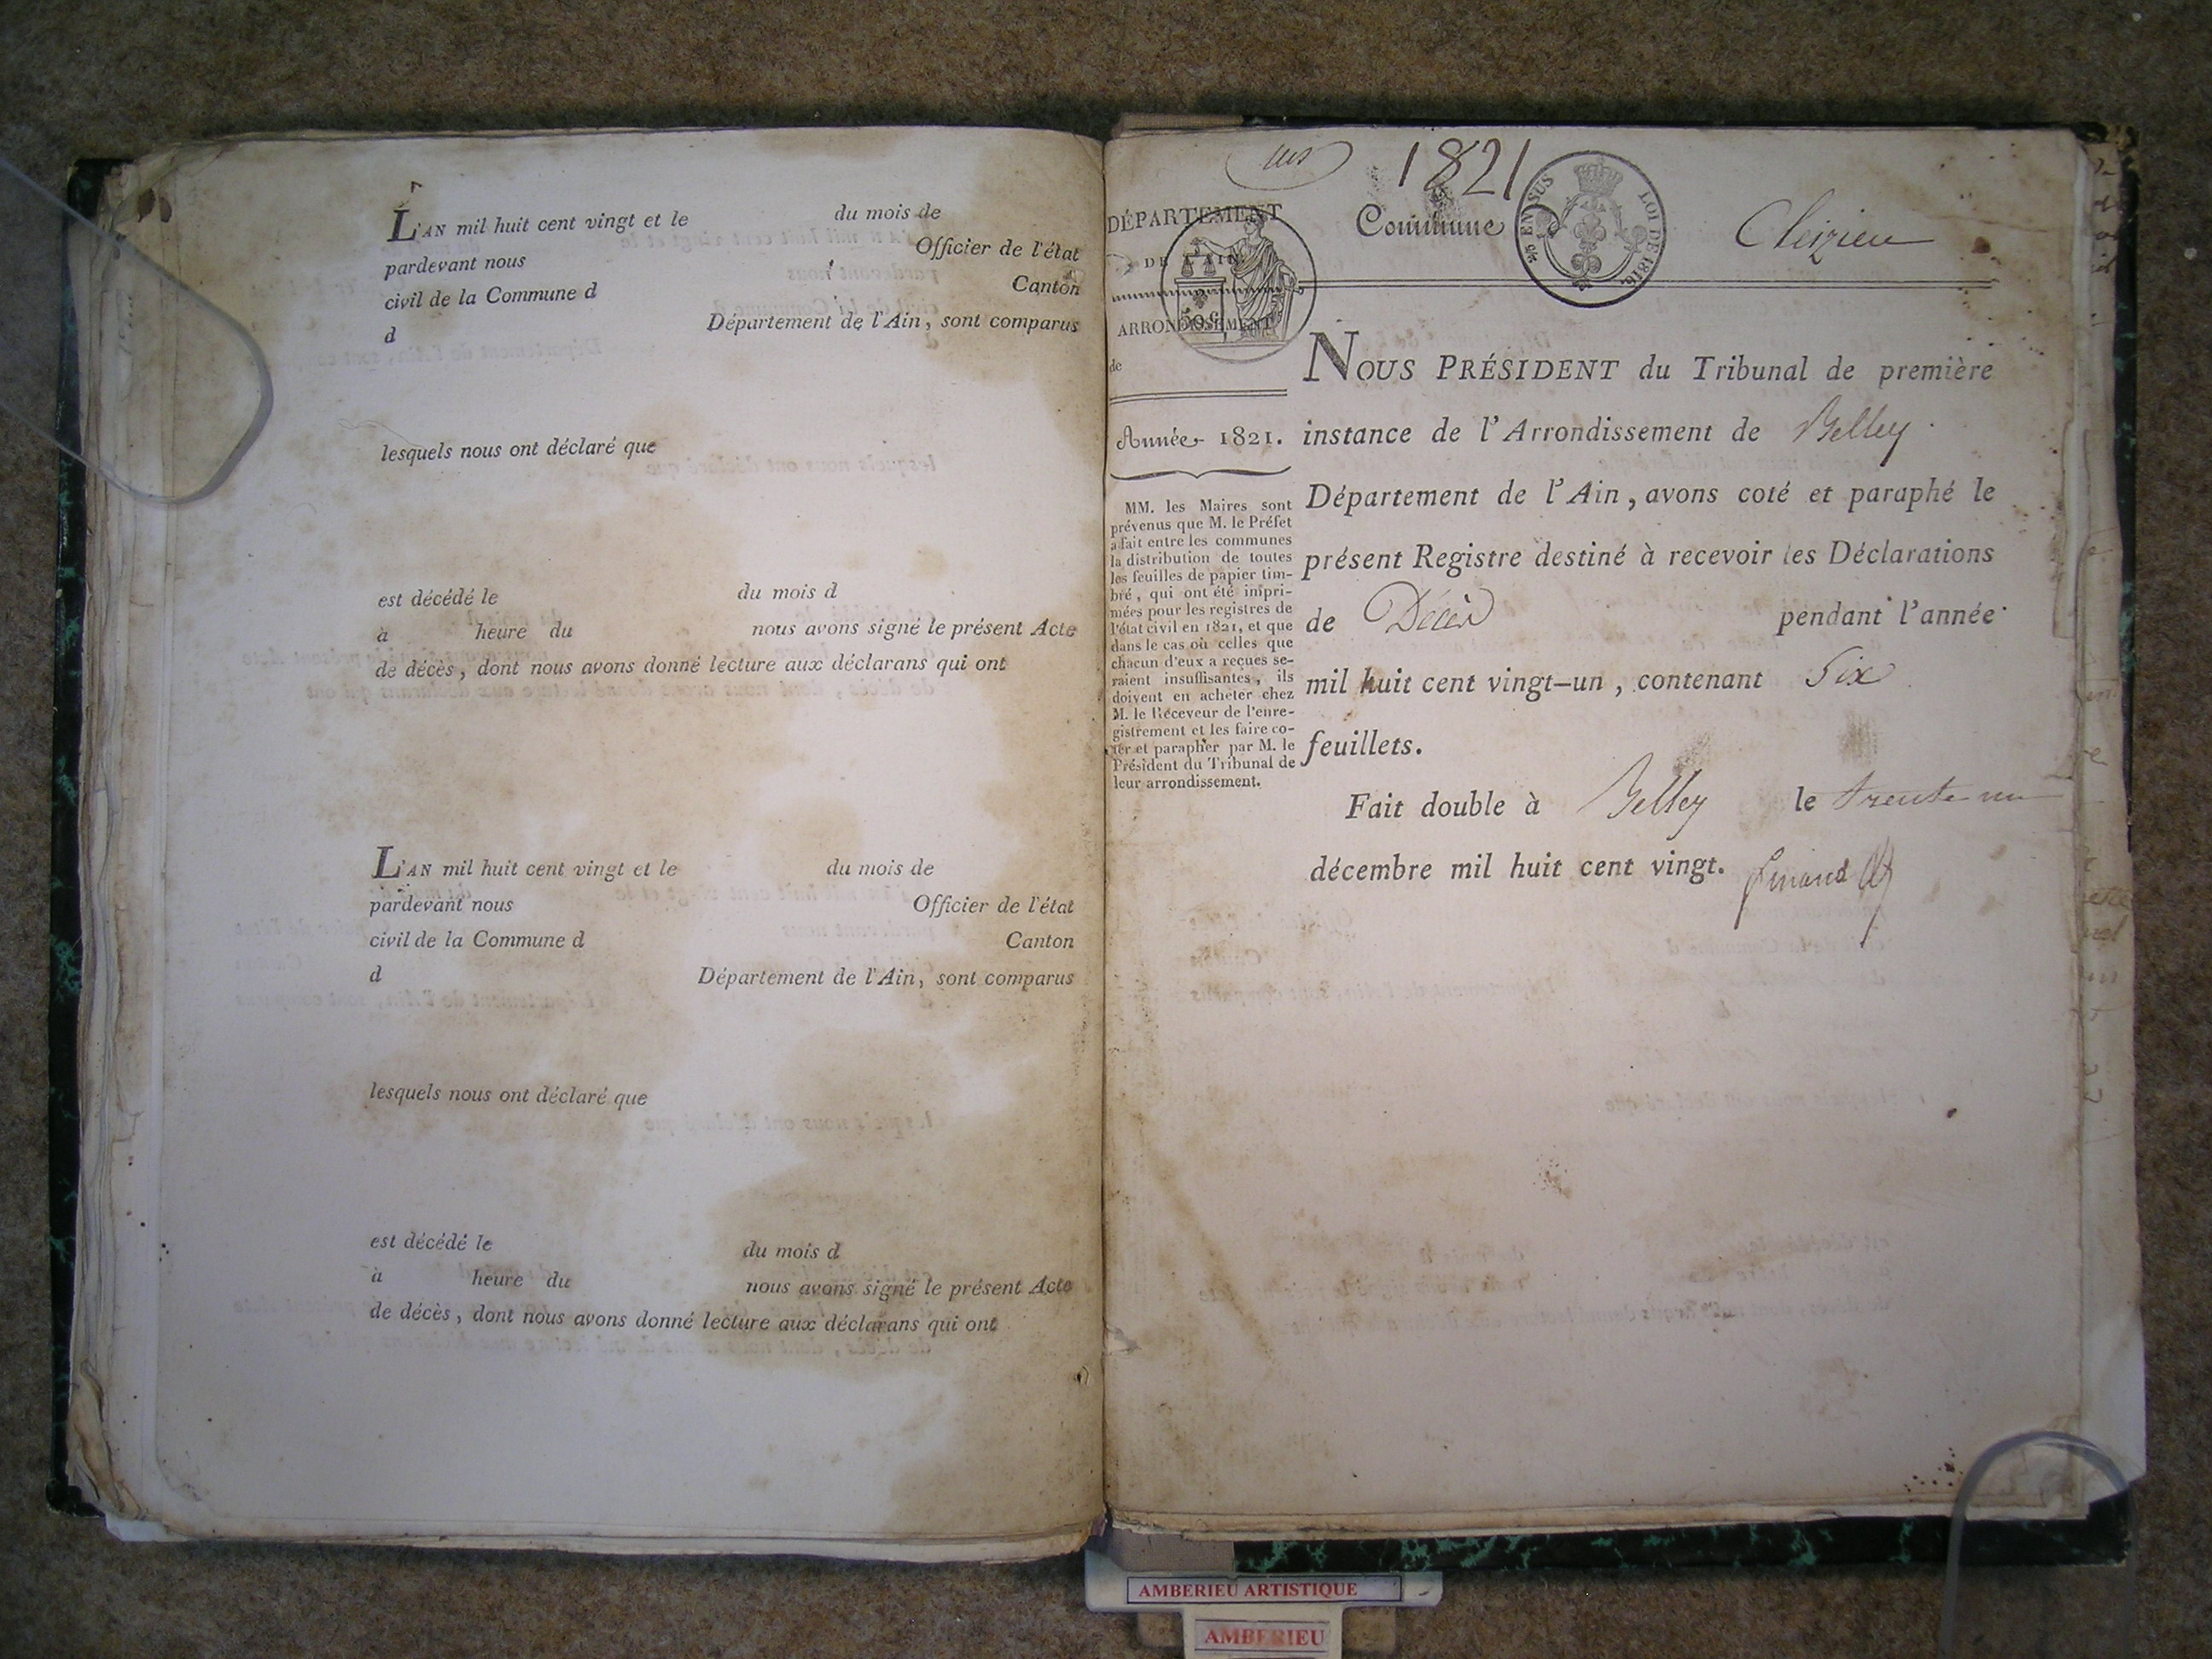 L'AN mil huit cent vingt et le du mois de
pardevant nous Officier de l'état
civil de la Commune d Canton
d Département de l'Ain, sont comparus
lesquels nous ont déclaré que
est décédé le du mois d
à heure du nous avons signé le présent Acte
de décès, dont nous avons donné lecture aux déclarans qui ont
L'AN mil huit cent vingt et le du mois de
pardevant nous Officier de l'état
civil de la Commune d Canton
d Département de l'Ain, sont comparus
lesquels nous ont déclaré que
est décédé le du mois d
à heure du nous avons signé le présent Acte
de décès, dont nous avons donné lecture aux déclarans qui ont
1821
DÉPARTEMENT
DE L'AIN.
ARRONDISSEMENT
de
50 c
Année 1821.
MM. les Maires sont
prévenus que M. le Préfet
a fait entre les communes
la distribution de toutes
les feuilles de papier tim-
bré, qui ont été impri-
mées pour les registres de
l'état civil en 1821, et que
dans le cas où celles que
chacun d'eux a reçues se-
raient insuffisantes, ils
doivent en acheter chez
M. le Receveur de l'enre-
gistrement et les faire co-
ter et parapher par M. le
Président du Tribunal de
leur arrondissement.
Commune d Cleizieu
EN SUS
LOI DE 1816
NOUS PRÉSIDENT du Tribunal de première
instance de l'Arrondissement de Belley
Département de l'Ain, avons coté et paraphé le
présent Registre destiné à recevoir les Déclarations
de Décès pendant l'année
mil huit cent vingt-un, contenant Six
feuillets.
Fait double à Belley le trente un
décembre mil huit cent vingt.
AMBERIEU ARTISTIQUE
AMBERIEU